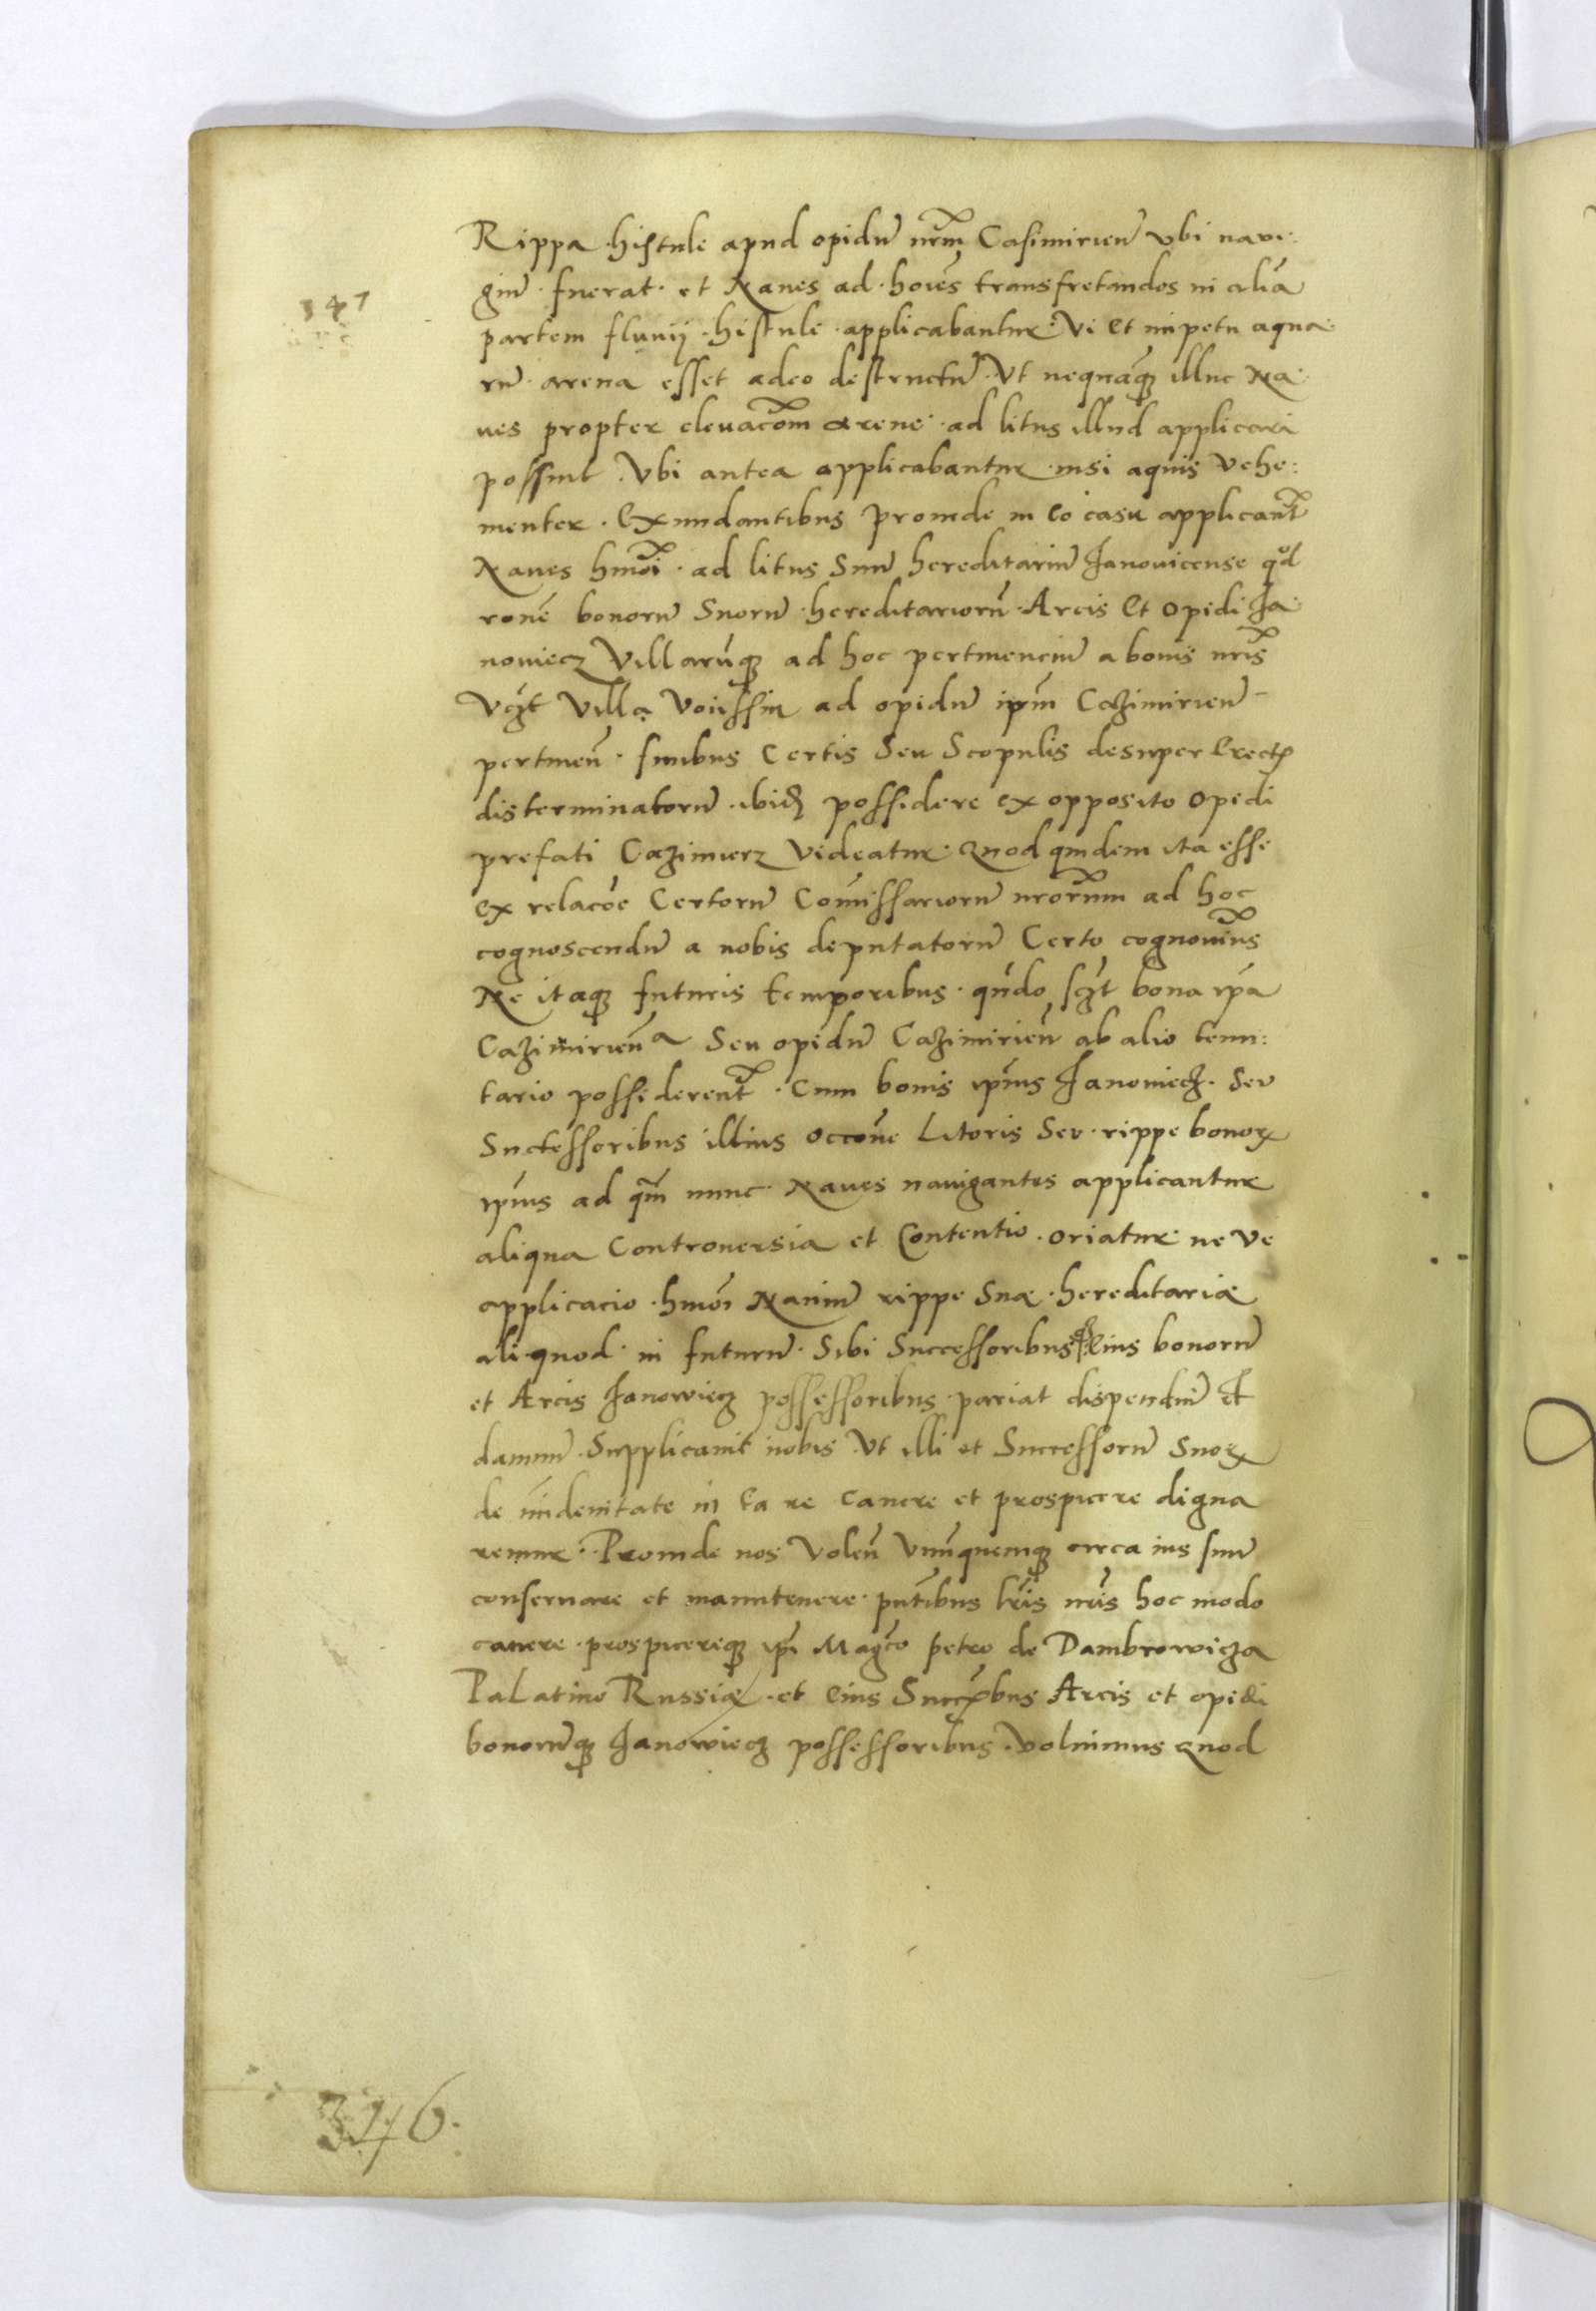 Rippa histule apud opidũ nrm̃ Casimirień vbi navi:
giũ fuerat et Naues ad hoiẽs transfretandos in aliã
347
partem fluuij histule applicabantur Vi et impetu aqua
rũ arena esset adeo destructũ Vt nequaq̃ illuc Na
ues propter eleuacõm arene ad litus illud applicari
possint Vbi antea applicabantur nisi aquis vehe:
menter Exundantibus Proinde in Eo casu applicant̃
Naues hmõi ad litus Suũ hereditariũ Janouicense qd̃
rone bonorũ Suorũ hereditariorũ Arcis Et Opidi Ja
nouiecz Villarũq̃ ad hoc pertinenciũ a bonis nris̃
Vcz̃t Villa ad opidũ ip̃m Cazimirień
pertineñ finibus Certis Seu Scopulis desuper Erect
disterminatorũ ibid possidere ex opposito Opidi
prefati Cazimierz Videatur Quod quidem ita esse
ex relacõe Certorũ Com̃issariorũ nrorum̃ ad hoc
cognoscendũ a nobis deputatorũ Certo cognouim̃us
Ne itaq̃ futuris temporibus qũdo scz̃t bona ip̃a
Cazimirieña Seu opidũ Cazimirień ab alio tenu:
tario possiderent̃ Cum bonis ip̃ius Janouiecz Seu
Successoribus illius occone Litoris Seu rippe bonor
ip̃ius ad qm̃ nunc Naues nauigantes applicantur
aliqua Controuersia et Contentio oriatur ne ve
applicacio hmõi Nauiũ rippe Suæ hereditariæ
aliquod in futurũ Sibi Successoribusq̃ Eius bonorũ
et Arcis Janowiecz possessoribus pariat dispendiũ Et
damnũ Supplicauit nobis Vt illi et Successorũ Suor
de indenitate in Ea re Cauere et prospicere digna
remur Proinde nos Voleñ Vnũquemq̃ circa ius suũ
conseruare et manutenere pñtibus lr̃is nr̃is hoc modo
cauere prospicereq̃ ip̃i Magc̃o petro de Dambrowicza
Palatino Russiæ et Eius Succ̃bus Arcis et opidi
bonorũq̃ Janowiecz possessoribus Voluimus Quod
346.